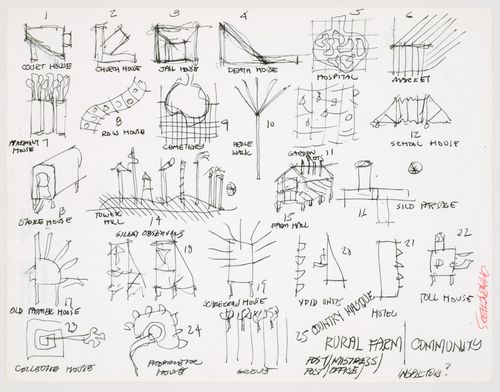 1 2 3 4 5 6
COURT HOUSE CHURCH HOUSE JAIL HOUSE DEATH HOUSE HOSPITAL MARKET
7 8 9 10 11 12
HOUSE ROW HOUSE CEMETERY WALK GARDEN PLOTS SCHOOL HOUSE
13 14 15 16
STORE HOUSE TOWER HILL FARM HALL SILO BRIDGE
17 SILENT OBSERVERS 18 19 20 21 22
OLD FARMER HOUSE SCARECROW HOUSE VOID UNITS HOTEL TOLL HOUSE
23 24 25
COLLECTOR HOUSE HOUSE COUNTRY
RURAL FARM COMMUNITY
POST/MISTRESS
POST/OFFICE INSPECTORS?